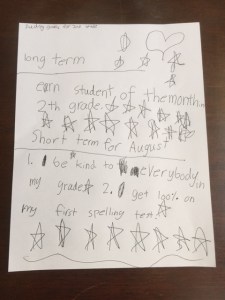 long term
earn student of the month in
2th grade.
Short term for August
1. be kind to everybody in
my grade 2. get 100% on
my first spelling test.